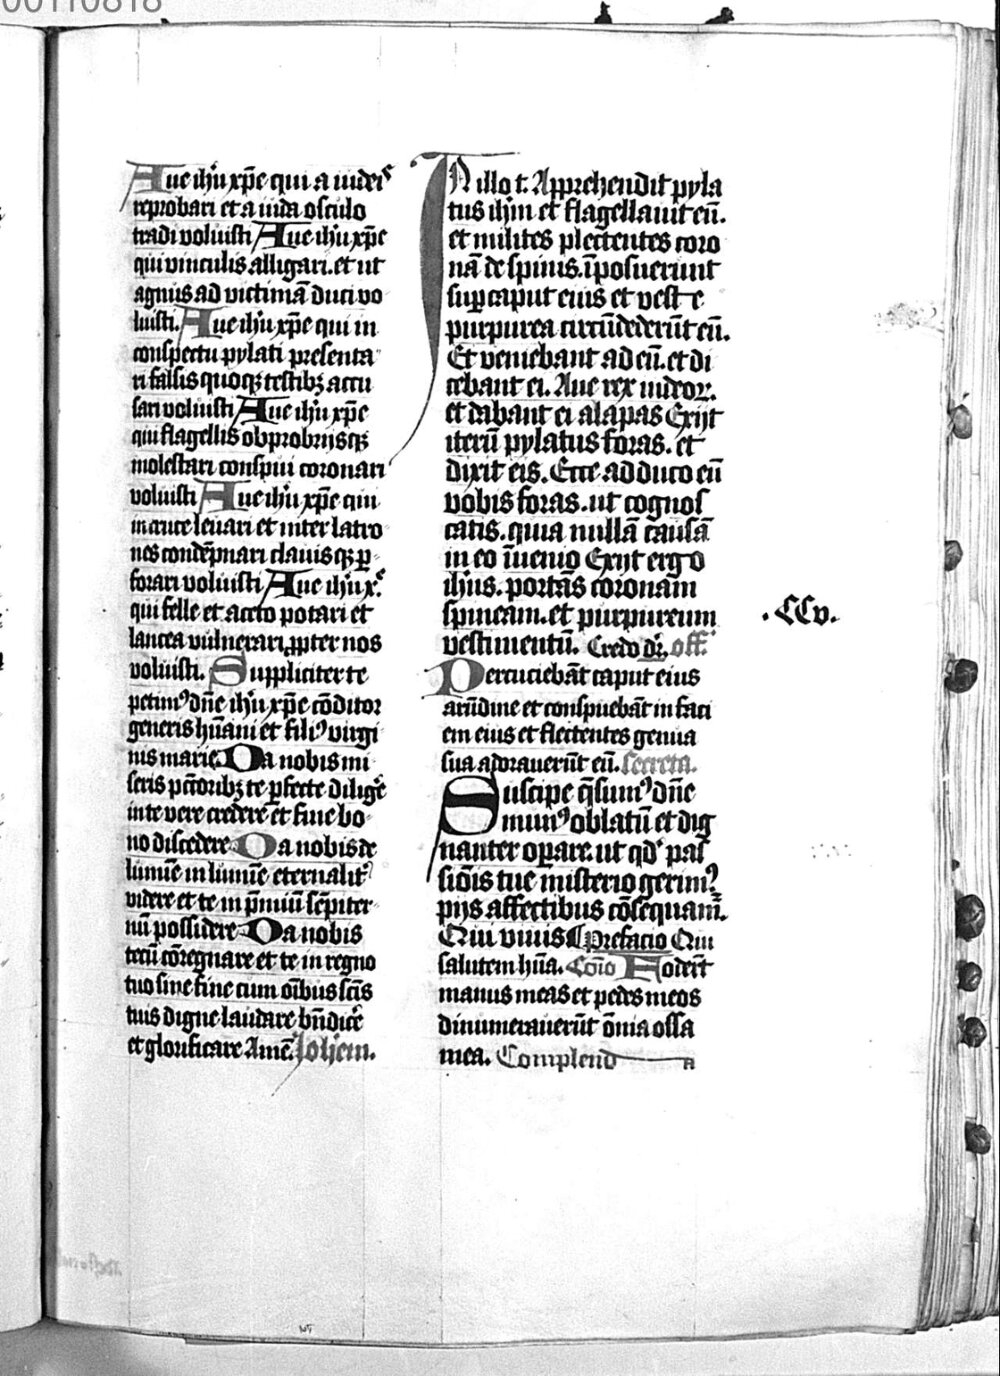 00110818
Aue ihu xpe qui a iudeis
reprobari et a iuda osculo
tradi voluisti Aue ihu xpe
qui vinculis alligari. et ut
agnus ad victimā duci vo
luisti. Aue ihu xpe qui in
conspectu pylati presenta
ri falsis quoqꝫ testibꝫ accu
sari voluisti Aue ihu xpe
qui flagellis obprobriisqꝫ
molestari conspui coronari
voluisti Aue ihu xpe qui
in cruce leuari et inter latro
nes condēpnari clauisqꝫ ꝑ
forari voluisti Aue ihu x.
qui felle et aceto potari et
lancea vulnerari ꝓpter nos
voluisti. Suppliciter te
petimꝰ dn̄e ihu xpe cōditor
generis hūani et filiꝰ virgi
nis marie Da nobis mi
seris pctōribꝫ te ꝑfecte diligē
in te vere credere et fine bo
no discedere Da nobis de
lumine in lumīe eternalit
videre et te in p̄miū sēpiter
nū possidere Da nobis
tecū cōregnare et te in regno
tuo sine fine cum oībus scīs
tuis digne laudare bn̄dicē
et glorificare Amē. Johem.
IN illo t. Apprehendit pyla
tus ihm et flagellauit eū.
et milites plectentes coro
nā de spinis. īposuerunt
suꝑ caput eius et veste
purpurea circūdederūt eū.
Et veniebant ad eū. et di
cebant ei. Aue rex iudeoꝝ.
et dabant ei alapas Exijt
iterū pylatus foras. et
dixit eis. Ecce adduco eū
vobis foras. ut cognos
catis. quia nullā causā
in eo īuenio Exijt ergo
ihus. portās coronam
spineam. et purpureum
vestimentū. Credo dr̄. off.
Percuciebāt caput eius
arūdine et conspuebāt in faci
em eius et flectentes genua
sua adorauerūt eū. Secreta.
Suscipe q̄sumꝰ dn̄e
munꝰ oblatū et dig
nanter oꝑare. ut qd pas
siōis tue misterio gerimꝰ
pijs affectibus cōsequam̄.
Qui viuis Prefacio Qui
salutem hūa. Cōio Foderūt
manus meas et pedes meos
dinumerauerūt ōnia ossa
mea. Complend a
.CCv.